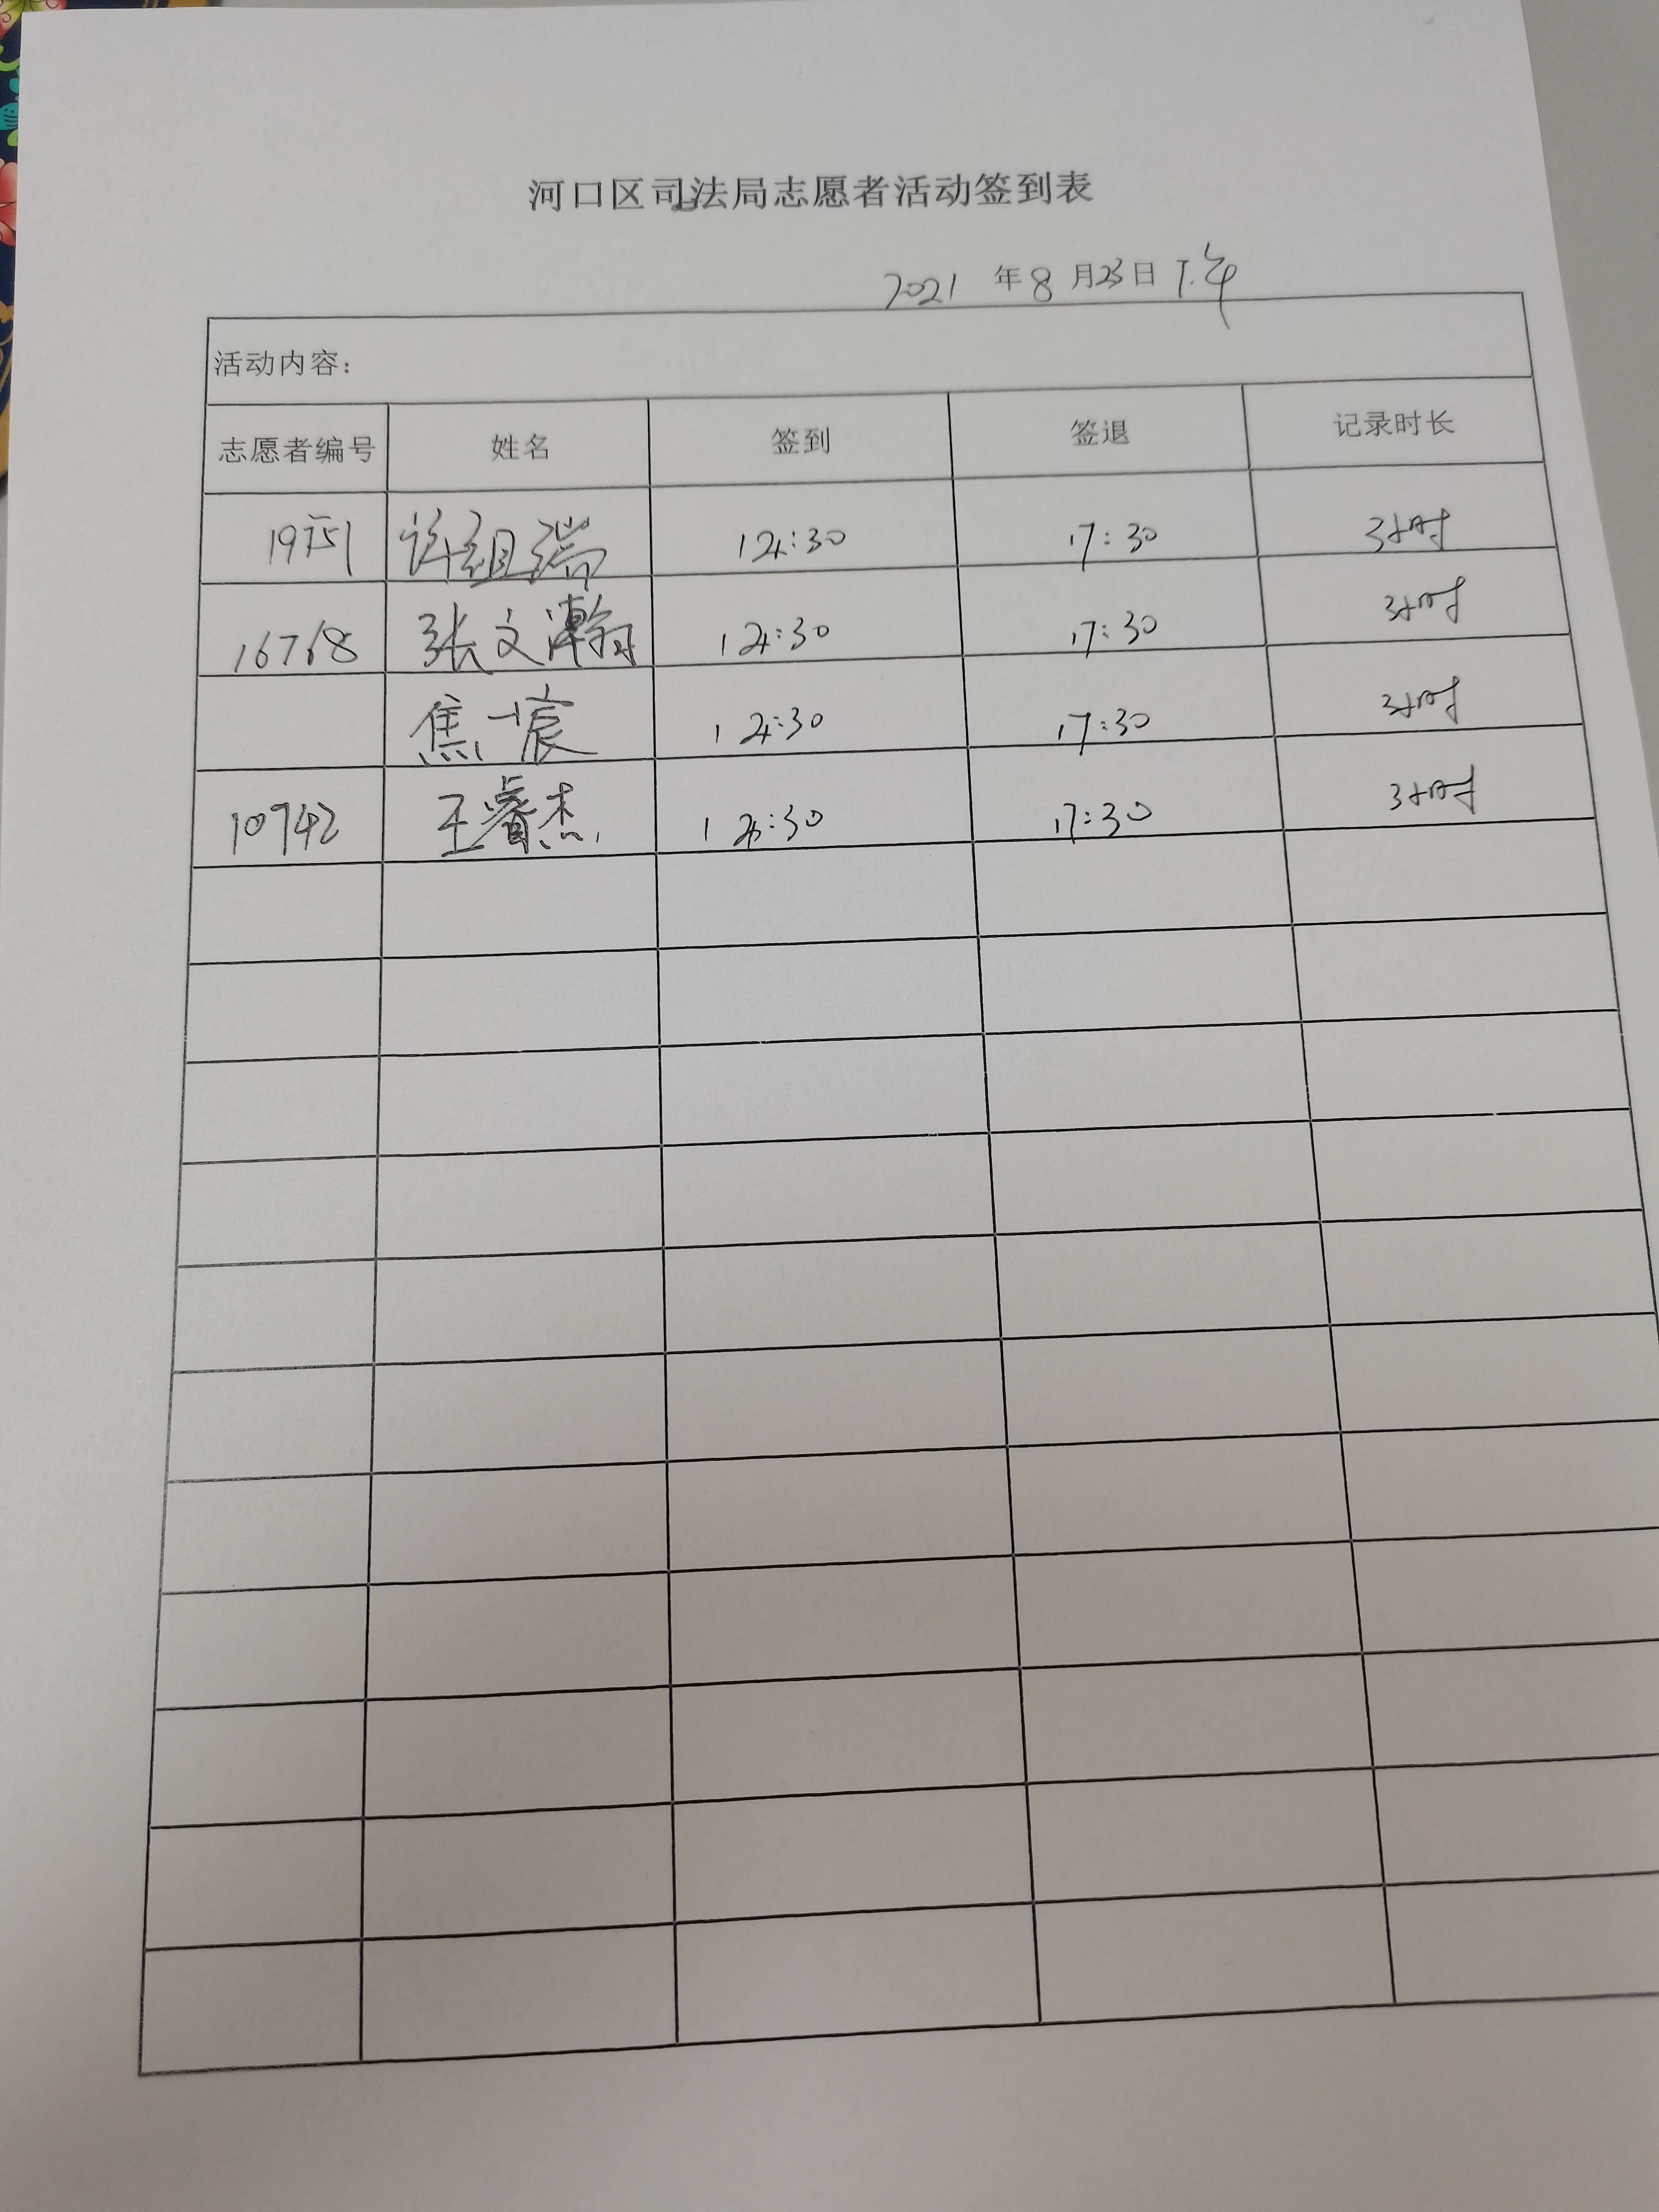 河口区司法局志愿者活动签到表
2021 年 8 月 23 日 下午
活动内容：
志愿者编号 姓名 签到 签退 记录时长
许祖瑞 17:30 3小时
16768 张文瀚 17:30 3小时
焦一宸 17:30 3小时
10742 王睿杰 17:30 3小时